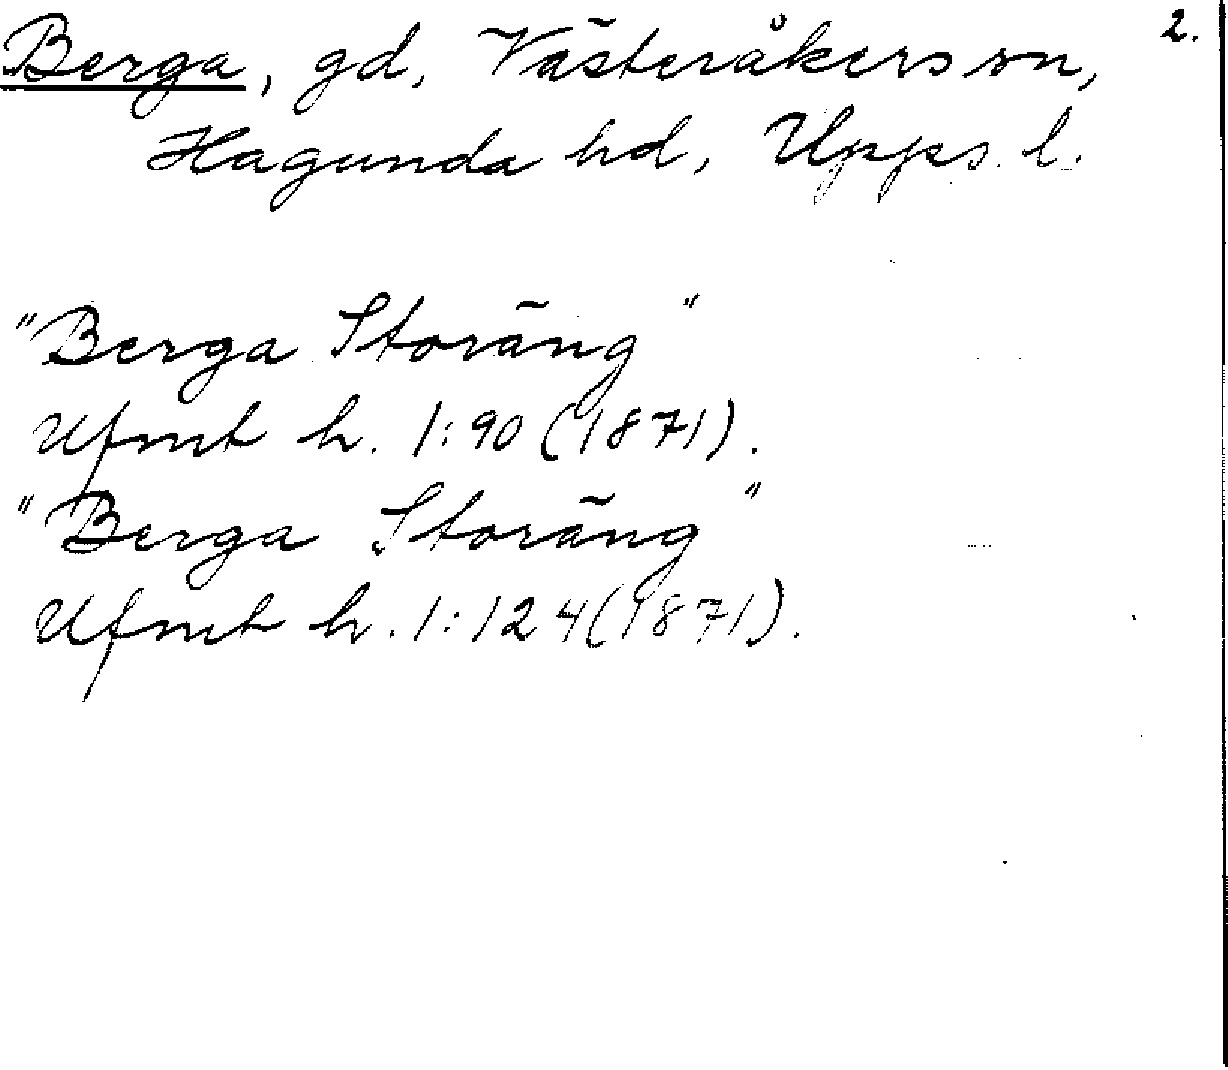 2.
Berga, gd, Västeråkers sn,
Hagunda hd, Upps. l.
"Berga Storäng"
Ufmt h. 1:90 (1871).
"Berga Storäng"
Ufmt h. 1:124 (1871).